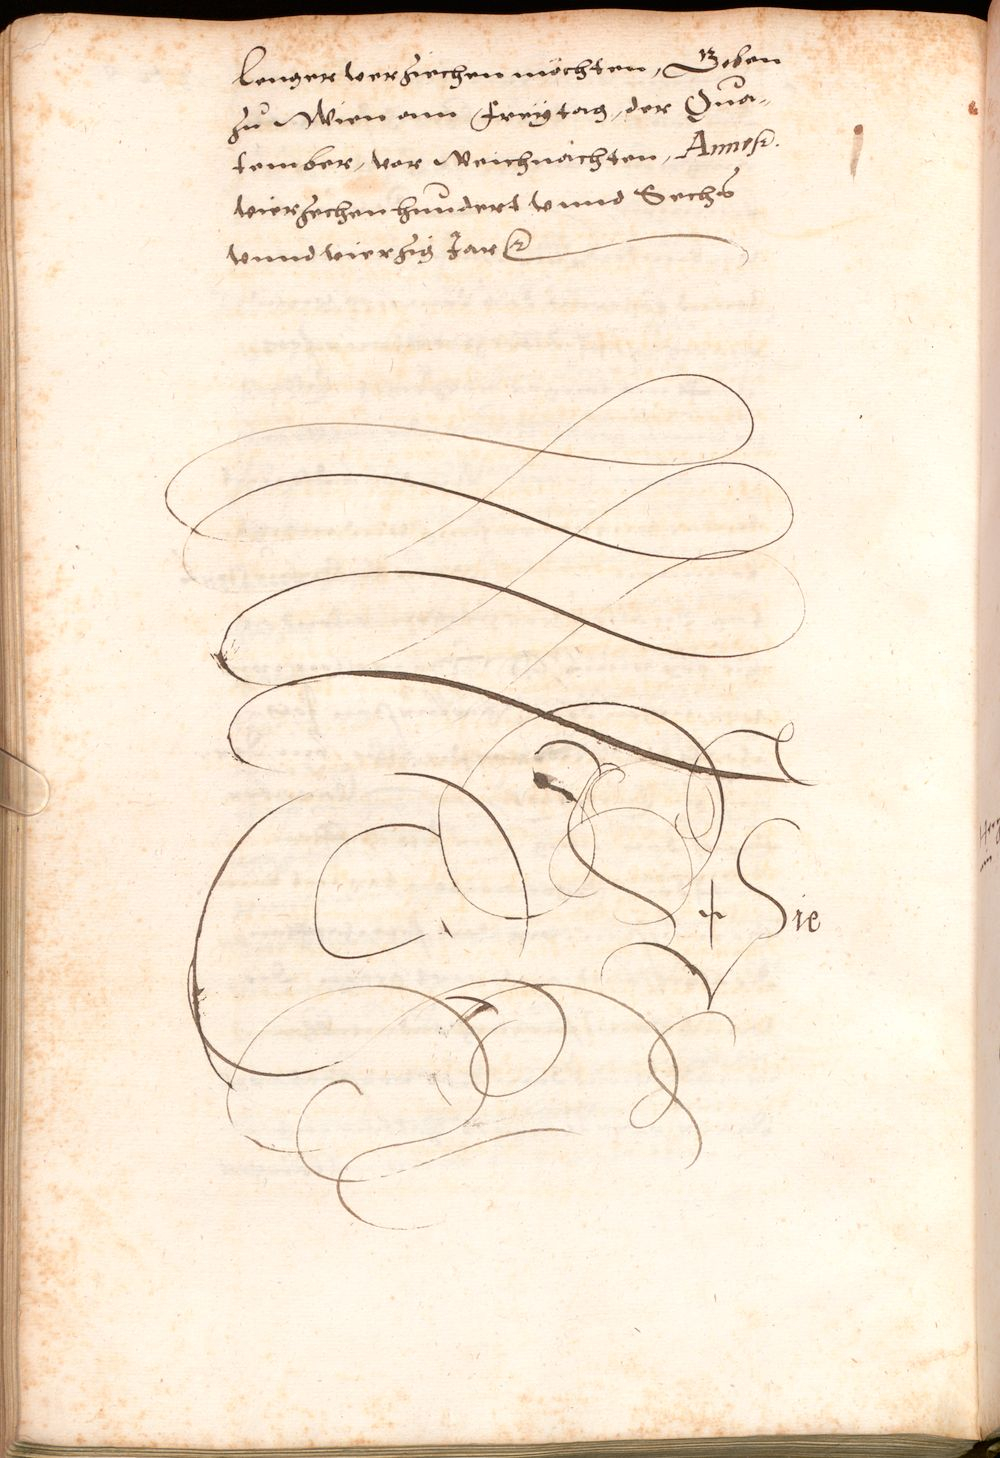 lenger verziechen möchten, Geben
zu Wien am Freytag, der Qua-
tember, vor Weichnächten, Anno
vierzechenhundert vnnd Sechs
vnnd vierzig Jar
Sie